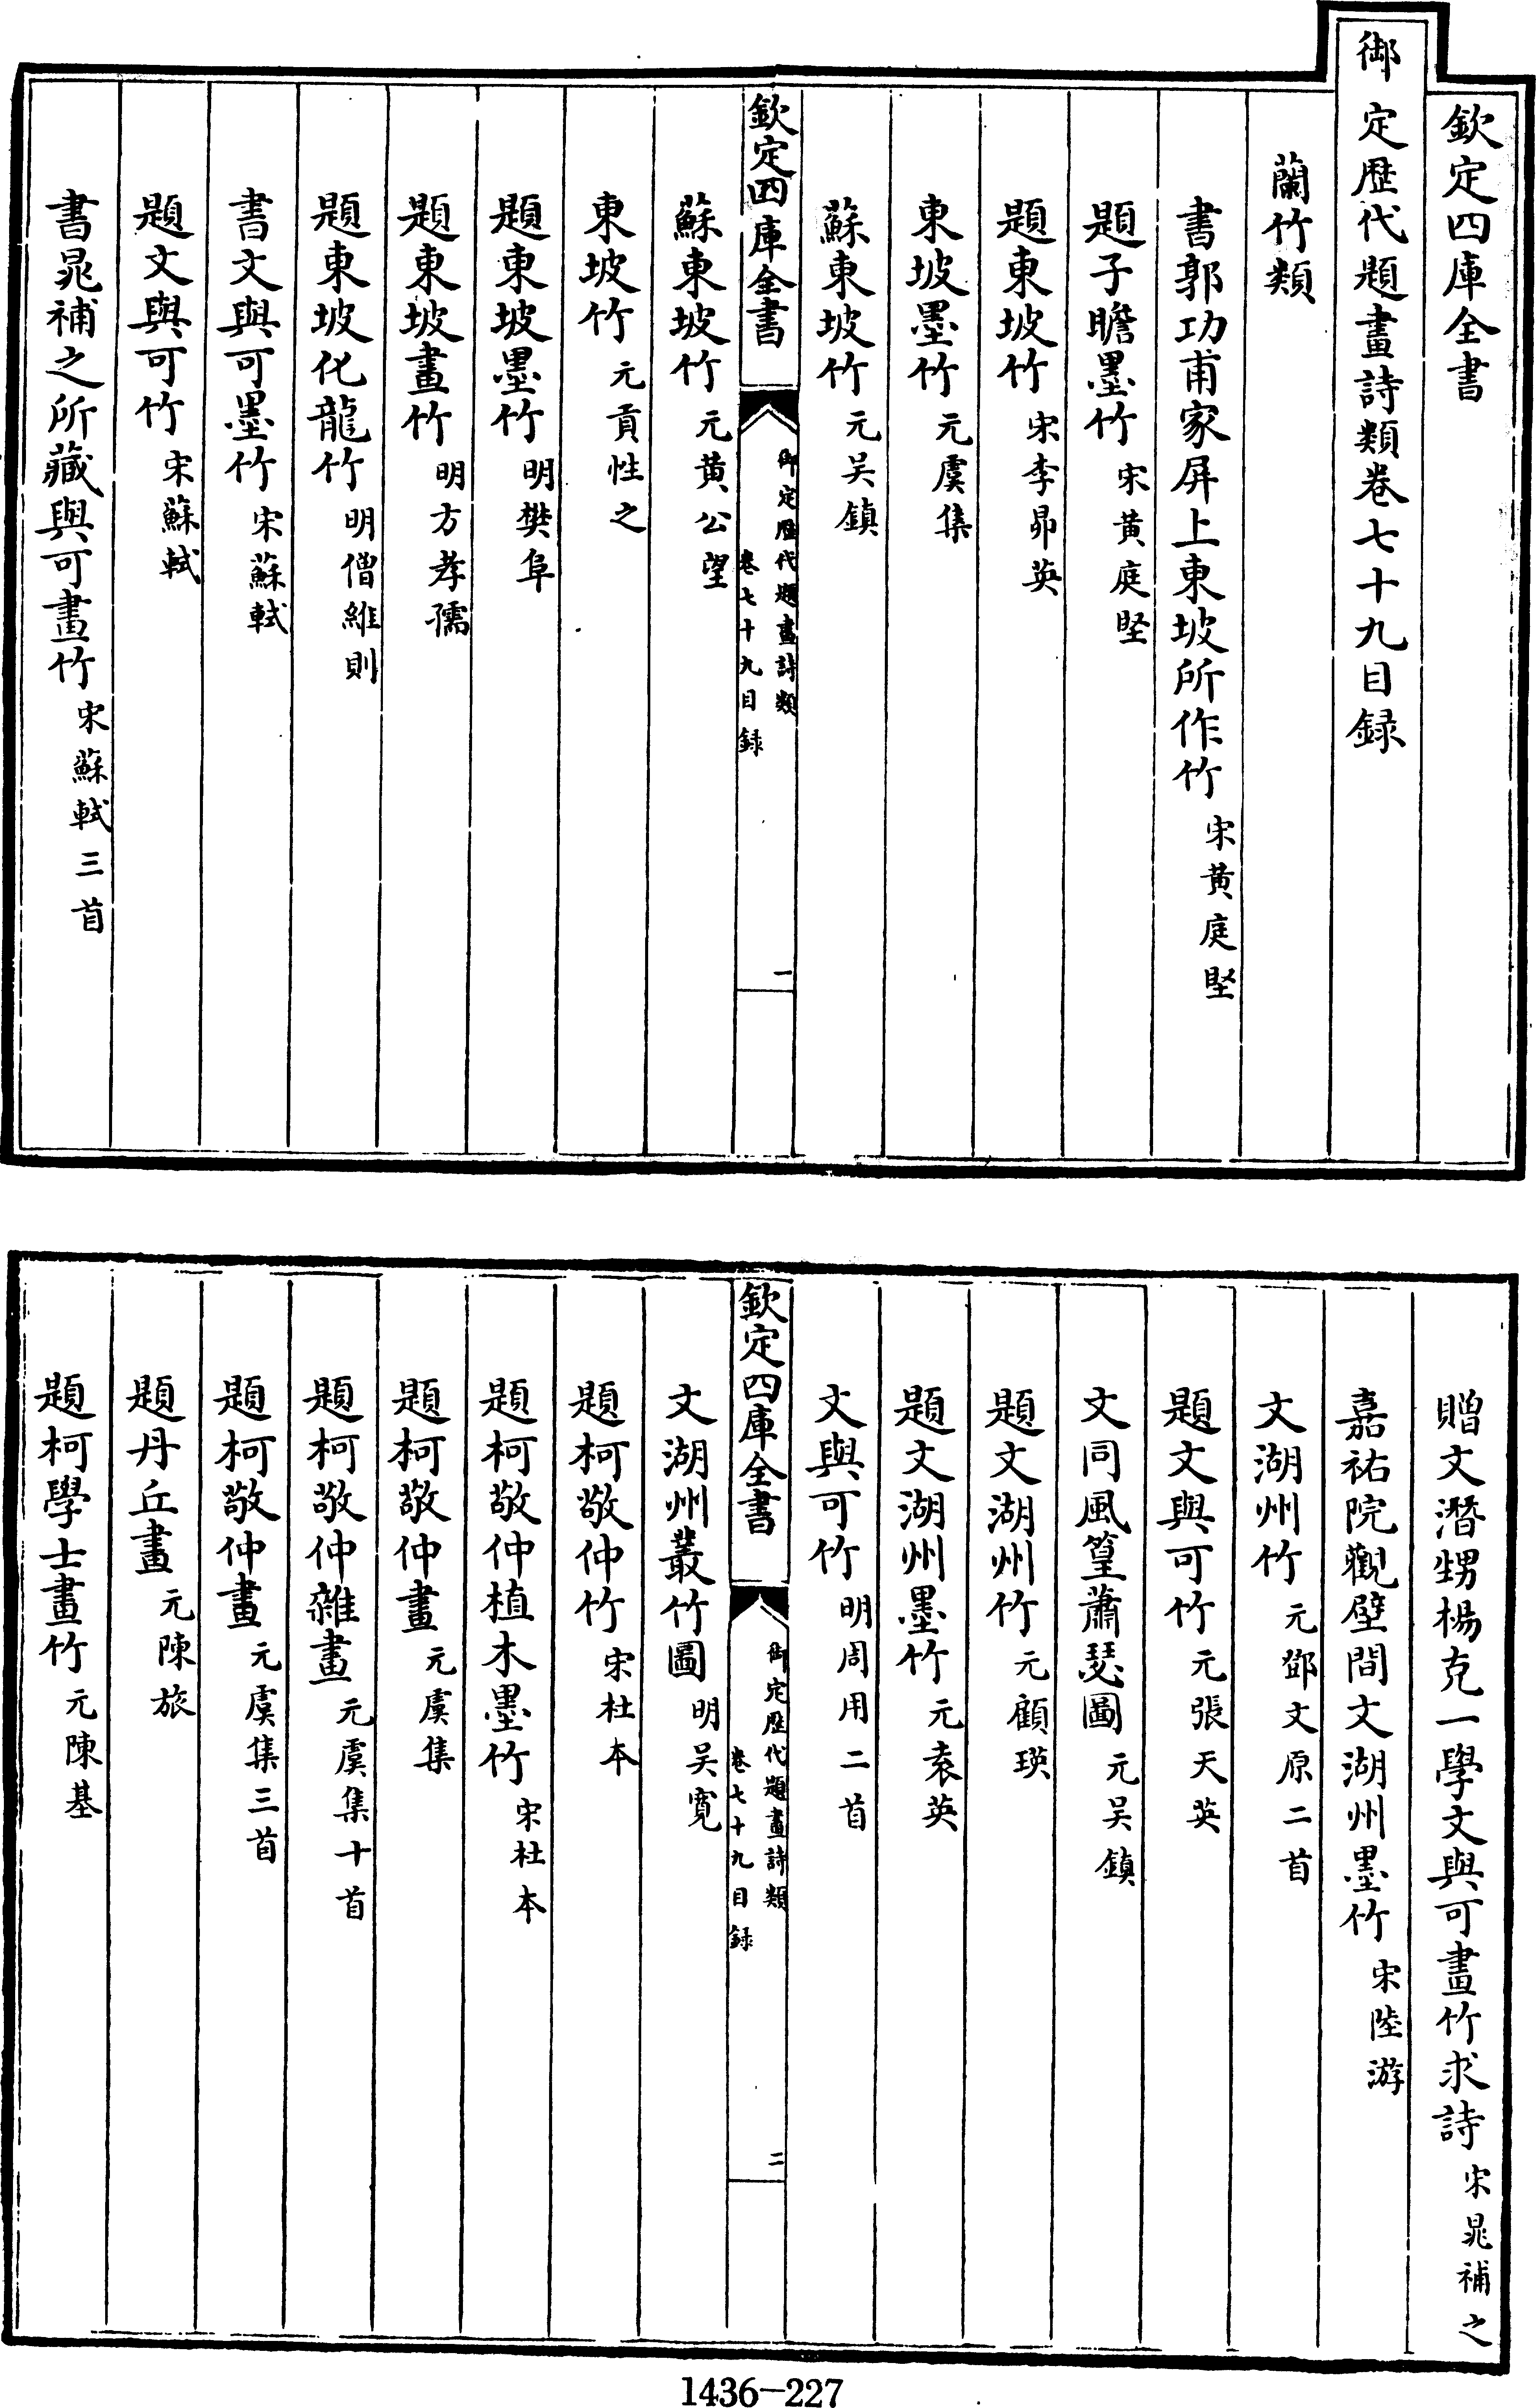 欽定四庫全書
御定歴代題畫詩類卷七十九目録
蘭竹類
書郭功甫家屏上東坡所作竹 宋黄庭堅
題子瞻墨竹 宋黄庭堅
題東坡竹 宋李昴英
東坡墨竹 元虞集
蘇東坡竹 元吴鎮
欽定四庫全書
御定歴代題畫詩類
卷七十九目録
一
蘇東坡竹 元黄公望
東坡竹 元貢性之
題東坡墨竹 明樊阜
題東坡畫竹 明方孝孺
題東坡化龍竹 明僧維則
書文與可墨竹 宋蘇軾
題文與可竹 宋蘇軾
書晁補之所藏與可畫竹 宋蘇軾三首
贈文潛甥楊克一學文與可畫竹求詩 宋晁補之
嘉祐院觀壁間文湖州墨竹 宋陸游
文湖州竹 元鄧文原二首
題文與可竹 元張天英
文同風篁蕭瑟圖 元吴鎮
題文湖州竹 元顧瑛
題文湖州墨竹 元袁英
文與可竹 明周用二首
欽定四庫全書
御定歴代題畫詩類
卷七十九目録
二
文湖州叢竹圖 明吴寛
題柯敬仲竹 宋杜本
題柯敬仲植木墨竹 宋杜本
題柯敬仲畫 元虞集
題柯敬仲雜畫 元虞集十首
題柯敬仲畫 元虞集三首
題丹丘畫 元陳旅
題柯學士畫竹 元陳基
1436-227